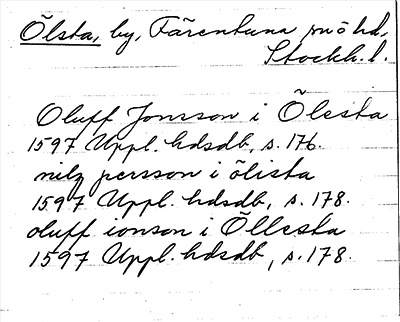 Ölsta, by, Färentuna sn ö hd,
Stockh. l.
Oluff Jonsson i Õlesta
1597 Uppl. hdsdb, s. 176.
nilz persson i õlista
1597 Uppl. hdsdb, s. 178.
oluff ionson i Õllesta
1597 Uppl. hdsdb, s. 178.